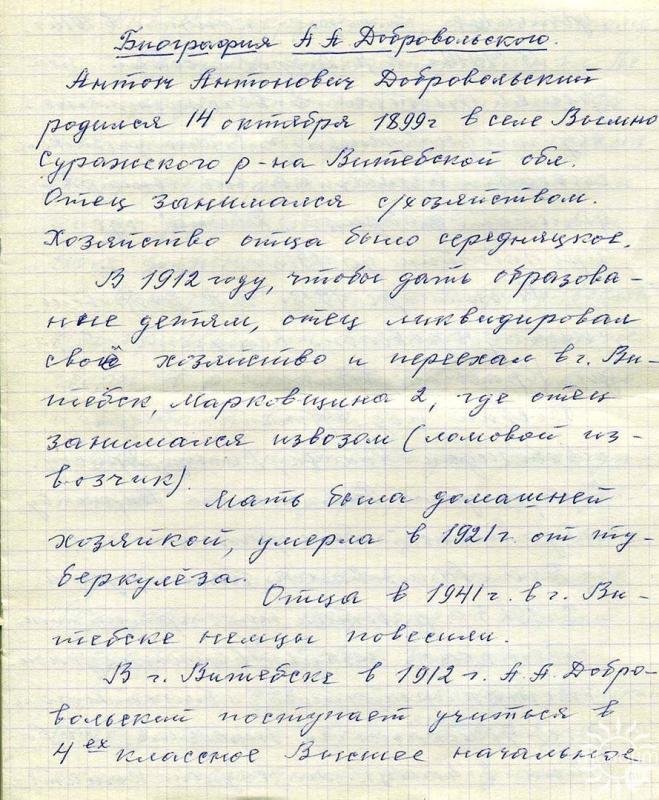 Биография А А Добровольского.
Антон Антонович Добровольский
родился 14 октября 1899г в селе Вымно
Суражского р-на Витебской обл.
Отец занимался с/хозяйством.
Хозяйство отца было середняцкое.
В 1912 году, чтобы дать образова-
ние детям, отец ликвидировал
своё хозяйство и переехал в г. Ви-
тебск, Марковщина 2, где отец
занимался извозом (ломовой из-
возчик).
Мать была домашней
хозяйкой, умерла в 1921г. от ту-
беркулёза.
Отца в 1941г. в г. Ви-
тебске немцы повесили.
В г. Витебске в 1912 г. А. А. Добро-
вольский поступает учиться в
4ех классное Высшее начальное